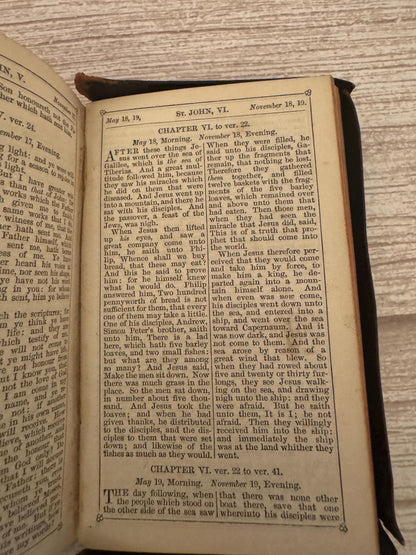 HN, V.
Novembe
on honoureth not the Fa
her which hath sen
V. ver. 24.
mber 17, Evening.
g light: and ye were
for a season to rejoic
But I have greate
ss than that of John
given me to finish
same works that
witness of me, that
her hath sent me.
her himself, which
sent me, hath borne
ess of me. Ye have
er heard his voice at
ime, nor seen his shape
ye have not his word
ing in you: for whom
th sent, him ye believe
ch the scriptures; for
ye think ye have
life: and they are
y might have life.
May 18, 19,
St. JOHN, VI.
November 18, 19.
CHAPTER VI. to ver. 22.
May 18, Morning. November 18, Evening.
AFTER these things Je-
sus went over the sea of
Galilee, which is the sea of
Tiberias. And a great mul-
titude followed him, because
they saw his miracles which
he did on them that were
diseased. And Jesus went up
into a mountain, and there he
sat with his disciples. And
the passover, a feast of the
Jews, was nigh.
When Jesus then lifted
up his eyes, and saw a
great company come unto
him, he saith unto Phi-
lip, Whence shall we buy
bread, that these may eat?
And this he said to prove
him: for he himself knew
what he would do. Philip
answered him, Two hundred
pennyworth of bread is not
sufficient for them, that every
one of them may take a little.
One of his disciples, Andrew,
Simon Peter's brother, saith
unto him, There is a lad
here, which hath five barley
loaves, and two small fishes:
but what are they among
so many? And Jesus said,
Make the men sit down. Now
there was much grass in the
place. So the men sat down,
in number about five thou-
sand. And Jesus took the
loaves; and when he had
given thanks, he distributed
to the disciples, and the dis-
ciples to them that were set
down; and likewise of the
fishes as much as they would.
When they were filled, he
said unto his disciples, Ga-
ther up the fragments that
remain, that nothing be lost.
Therefore they gathered
them together, and filled
twelve baskets with the frag-
ments of the five barley
loaves, which remained over
and above unto them that
had eaten. Then those men,
when they had seen the
miracle that Jesus did, said,
This is of a truth that pro-
phet that should come into
the world.
When Jesus therefore per-
ceived that they would come
and take him by force, to
make him a king, he de-
parted again into a moun-
tain himself alone. And
when even was now come, his
disciples went down unto
the sea, and entered into a
ship, and went over the sea
toward Capernaum. And it
was now dark, and Jesus was
not come to them. And the
sea arose by reason of a
great wind that blew. So
when they had rowed about
five and twenty or thirty fur-
longs, they see Jesus walk-
ing on the sea, and drawing
nigh unto the ship: and they
were afraid. But he saith
unto them, It is I; be not
afraid. Then they willingly
received him into the ship:
and immediately the ship
was at the land whither they
went.
CHAPTER VI. ver. 22 to ver. 41.
May 19, Morning. November 19, Evening.
THE day following, when
the people which stood on
the other side of the sea saw
that there was none other
boat there, save that one
whereinto his disciples were